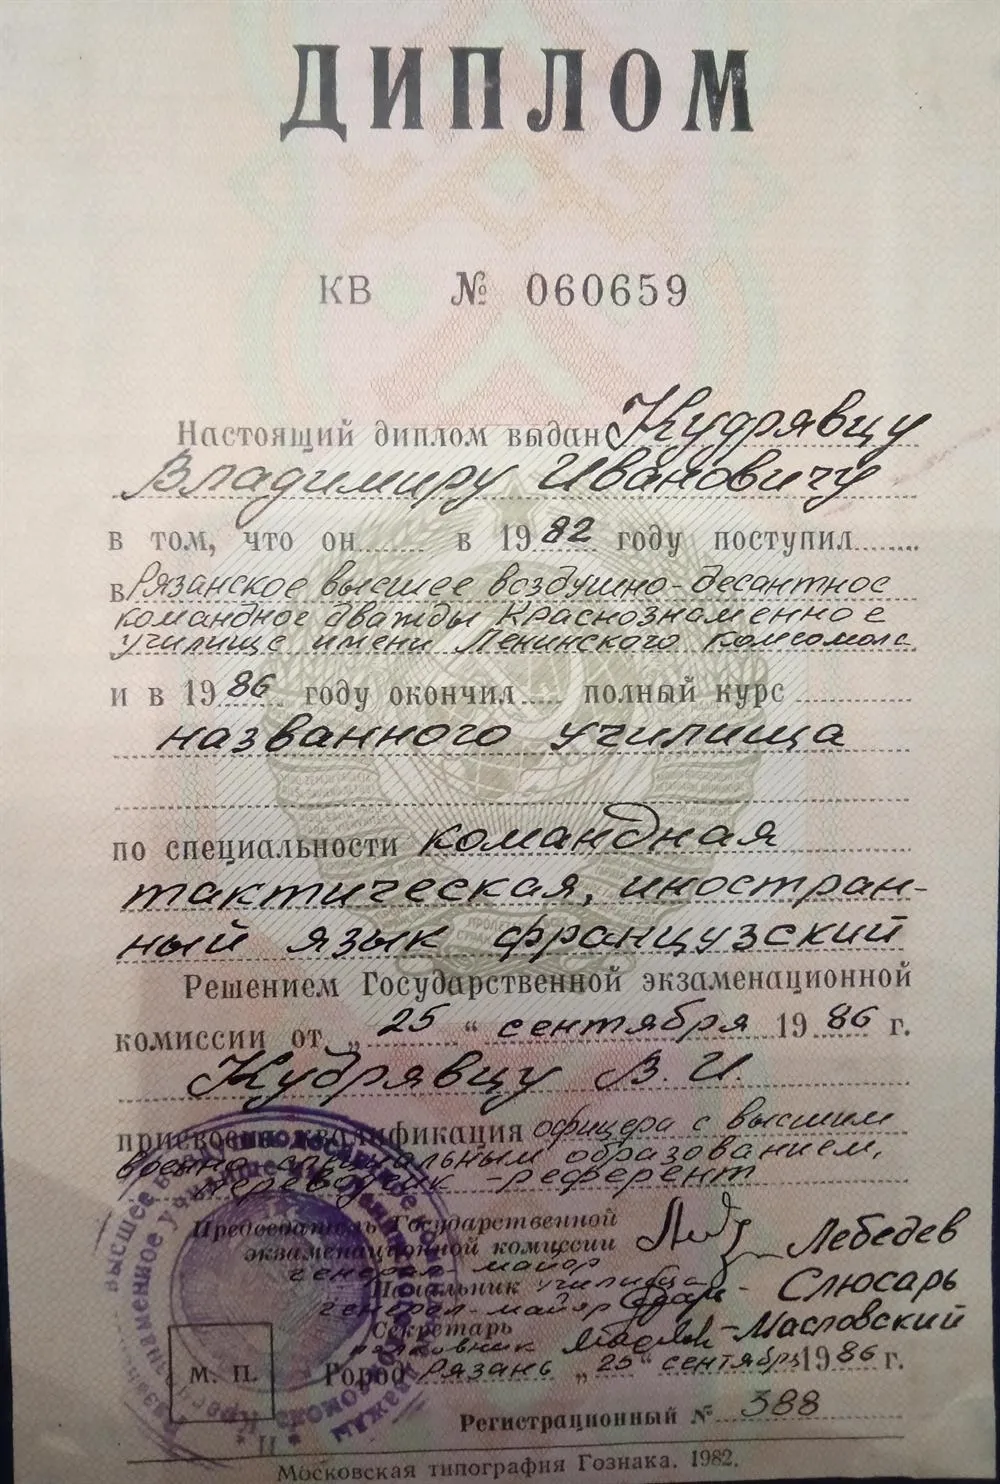 ДИПЛОМ
КВ № 060659
Настоящий диплом выдан Кудрявцу
Владимиру Ивановичу
в том, что он в 1982 году поступил
в Рязанское высшее воздушно-десантное
командное дважды Краснознаменное
училище имени Ленинского комсомола
и в 1986 году окончил полный курс
названного училища
по специальности командная
тактическая, иностран-
ный язык французский
Решением Государственной экзаменационной
комиссии от „25“ сентября 1986 г.
Кудрявцу В. И.
присвоена квалификация офицера с высшим
военно-специальным образованием,
переводчик-референт
Председатель Государственной
экзаменационной комиссии
генерал-майор Лебедев
Начальник училища
генерал-майор - Слюсарь
Секретарь
полковник - Масловский
М. П. Город Рязань „25“ сентября 1986 г.
Регистрационный № 388
Московская типография Гознака. 1982.